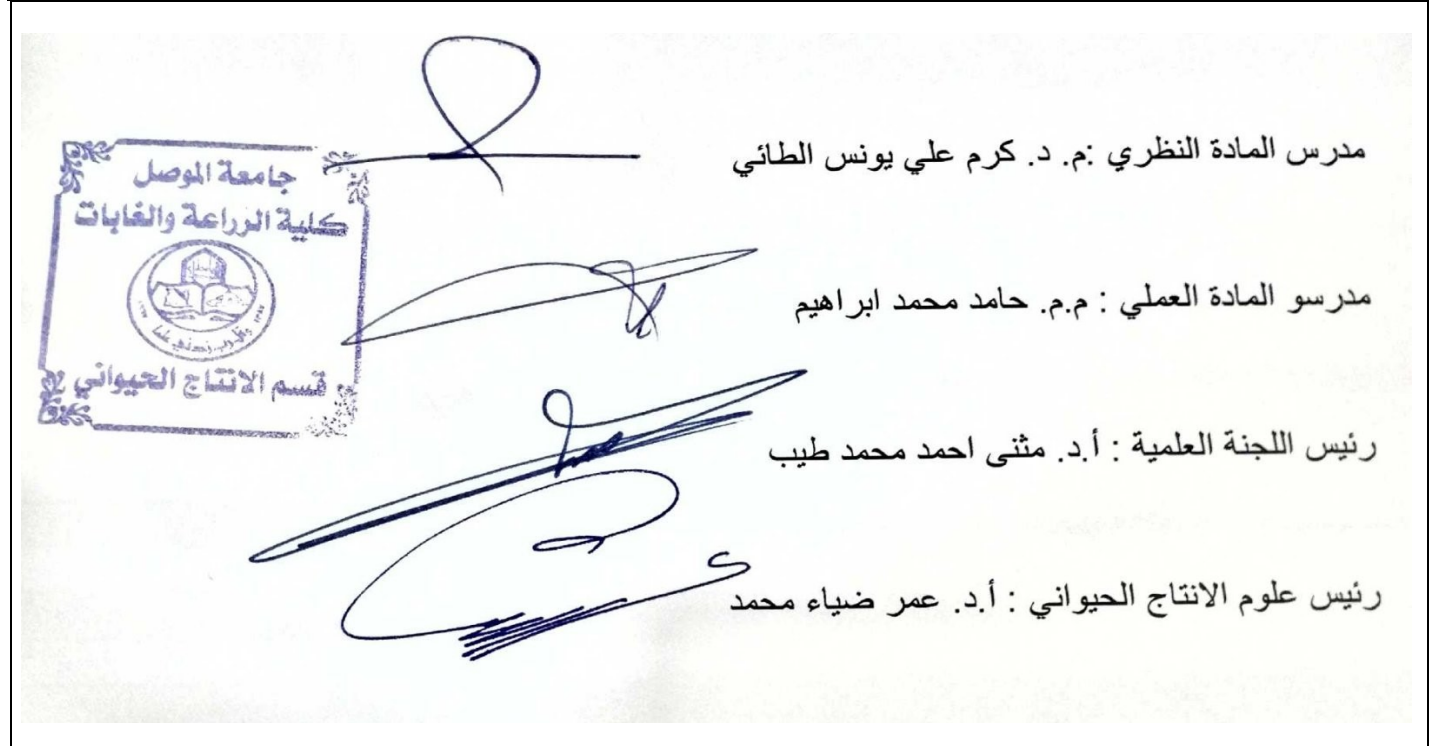 مدرس المادة النظري :م. د. كرم علي يونس الطائي
مدرسو المادة العملي : م.م. حامد محمد ابراهيم
رئيس اللجنة العلمية : أ.د. مثنى احمد محمد طيب
رئيس علوم الانتاج الحيواني : أ.د. عمر ضياء محمد
جامعة الموصل
كلية الزراعة والغابات
قسم الانتاج الحيواني